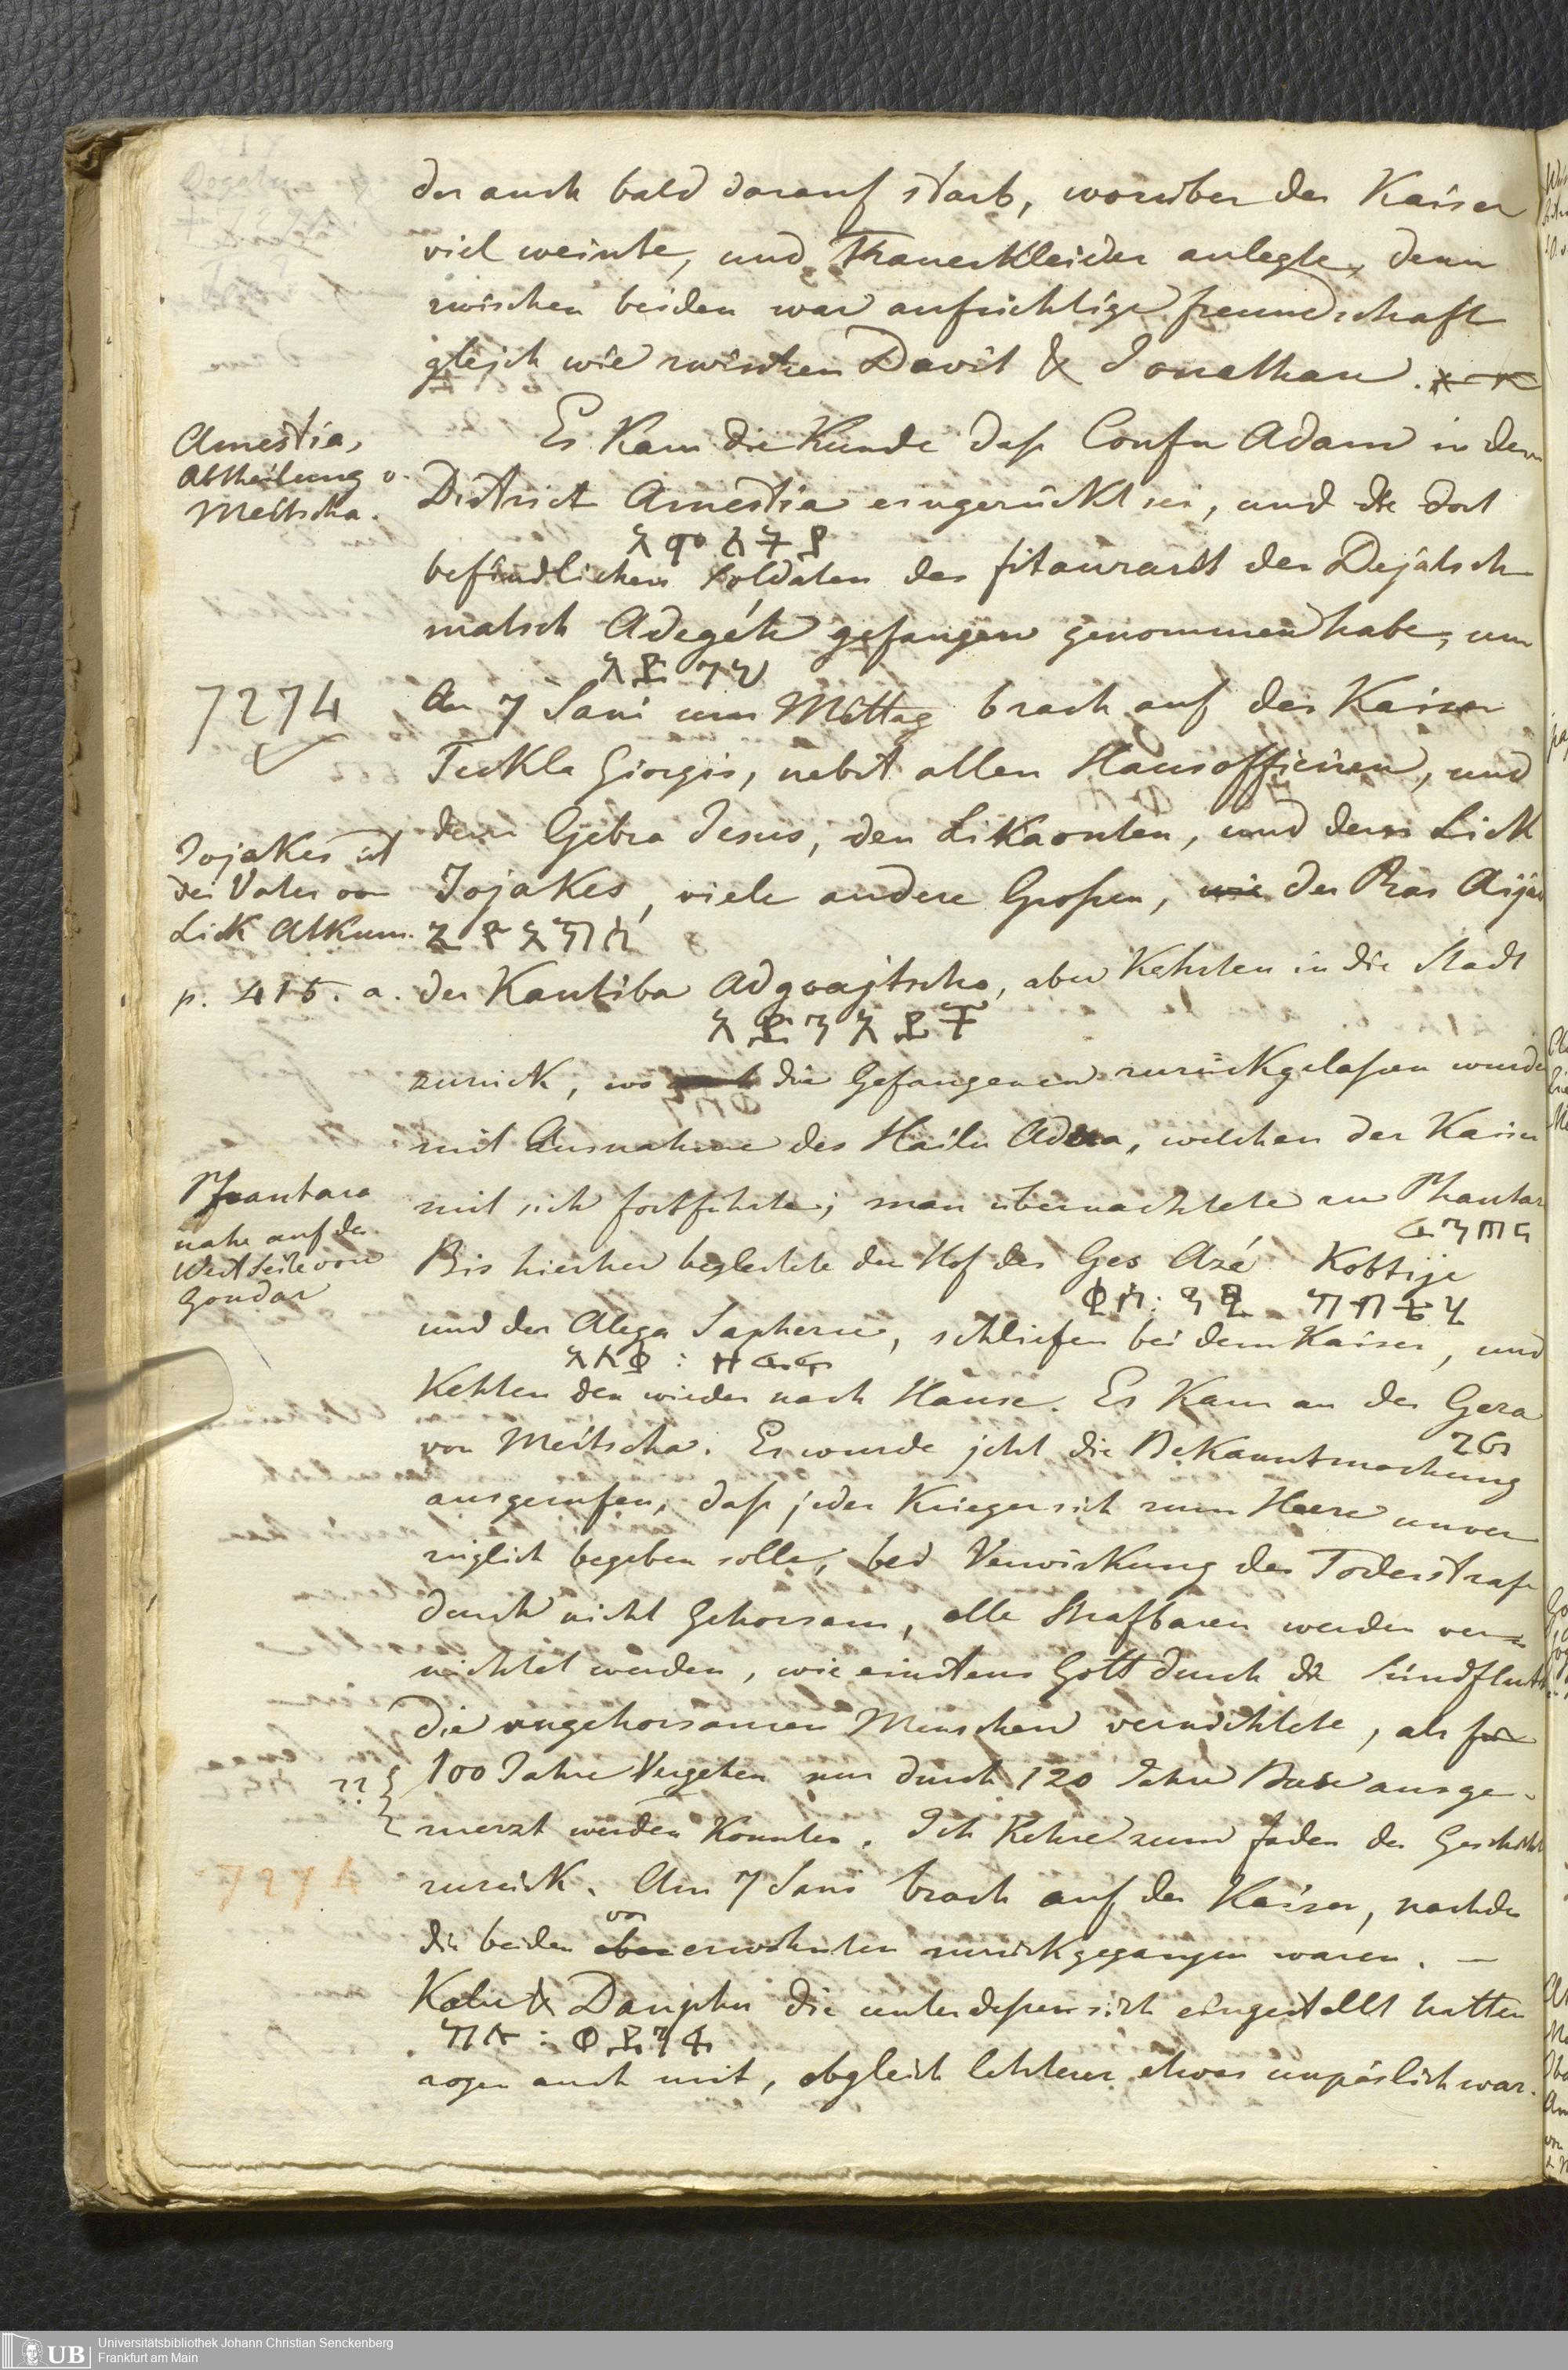 der auch bald darauf starb, worüber der Kaiser
viel weinte, und Trauerkleider anlegte, denn
zwischen beiden war aufrichtige freundschaft
gleich wie zwischen David & Jonathan.
Amestia,
Abtheilung v.
Meitscha.
Es kam die Kunde daß Confu Adam in den
District Amestia eingerückt sei, und die dort
አመስትያ
befindlichen Soldaten des fitaurari des Dejatsch
matsch Adegéh gefangen genommen habe; um
አደጋህ
7274
Am 7 Sani um Mittag brach auf der Kaiser
Teckla Giorgis, nebst allen Hausofficiren, und
dem Gebra Jesus, den Likaonten, und dem Lick
Jojakes ist
der Vater von
Lick Atkum.
p. 415. a.
Jojakes, viele andere Großen, wie der Ras Aijad
ዮአኪስ
der Kantiba Adgoajtscho, aber kehrten in die Stadt
አድጎአይቾ
zurück, wo die Gefangenen zurückgelaßen wurden
mit Ausnahme des Hailu Adera, welchen der Kaiser
Pfantara
nahe auf der
West Seite von
Gondar
mit sich fortführte; man übernachtete zu Phantar
ፈንጠር
Bis hierher begleitete der Hof der Ges Azé Kobtije
ቄስ : ዓጼ ኮብትዬ
und der Alega Sapherie, schliefen bei dem Kaiser, und
አለቃ :
kehrten den wieder nach Hause. Es kam an der Gera
von Meitscha. Es wurde jetzt die Bekanntmachung
ausgerufen, daß jeder Krieger sich zum Heere unver
züglich begeben solle, bei Verwirkung der Todesstrafe
durch nicht Gehorsam, alle Strafbaren werden ver=
nichtet werden, wie einstens Gott durch die Sündfluth
die ungehorsamen Menschen vernichtete, als für
?? 100 Jahre Vergehen nur durch 120 Jahre Buse ausge-
merzt werden konnten. Ich kehre zum faden der Geschichte
7274
zurück. Am 7 Sani brach auf der Kaiser, nachdem
die beiden oben vor erwähnten zurückgegangen waren. —
Kalu & Danjphu die unterdeßen sich eingestellt hatten
ካሉ :
zogen auch mit, obgleich letzterer etwas unpäslich war.
UB Universitätsbibliothek Johann Christian Senckenberg
Frankfurt am Main